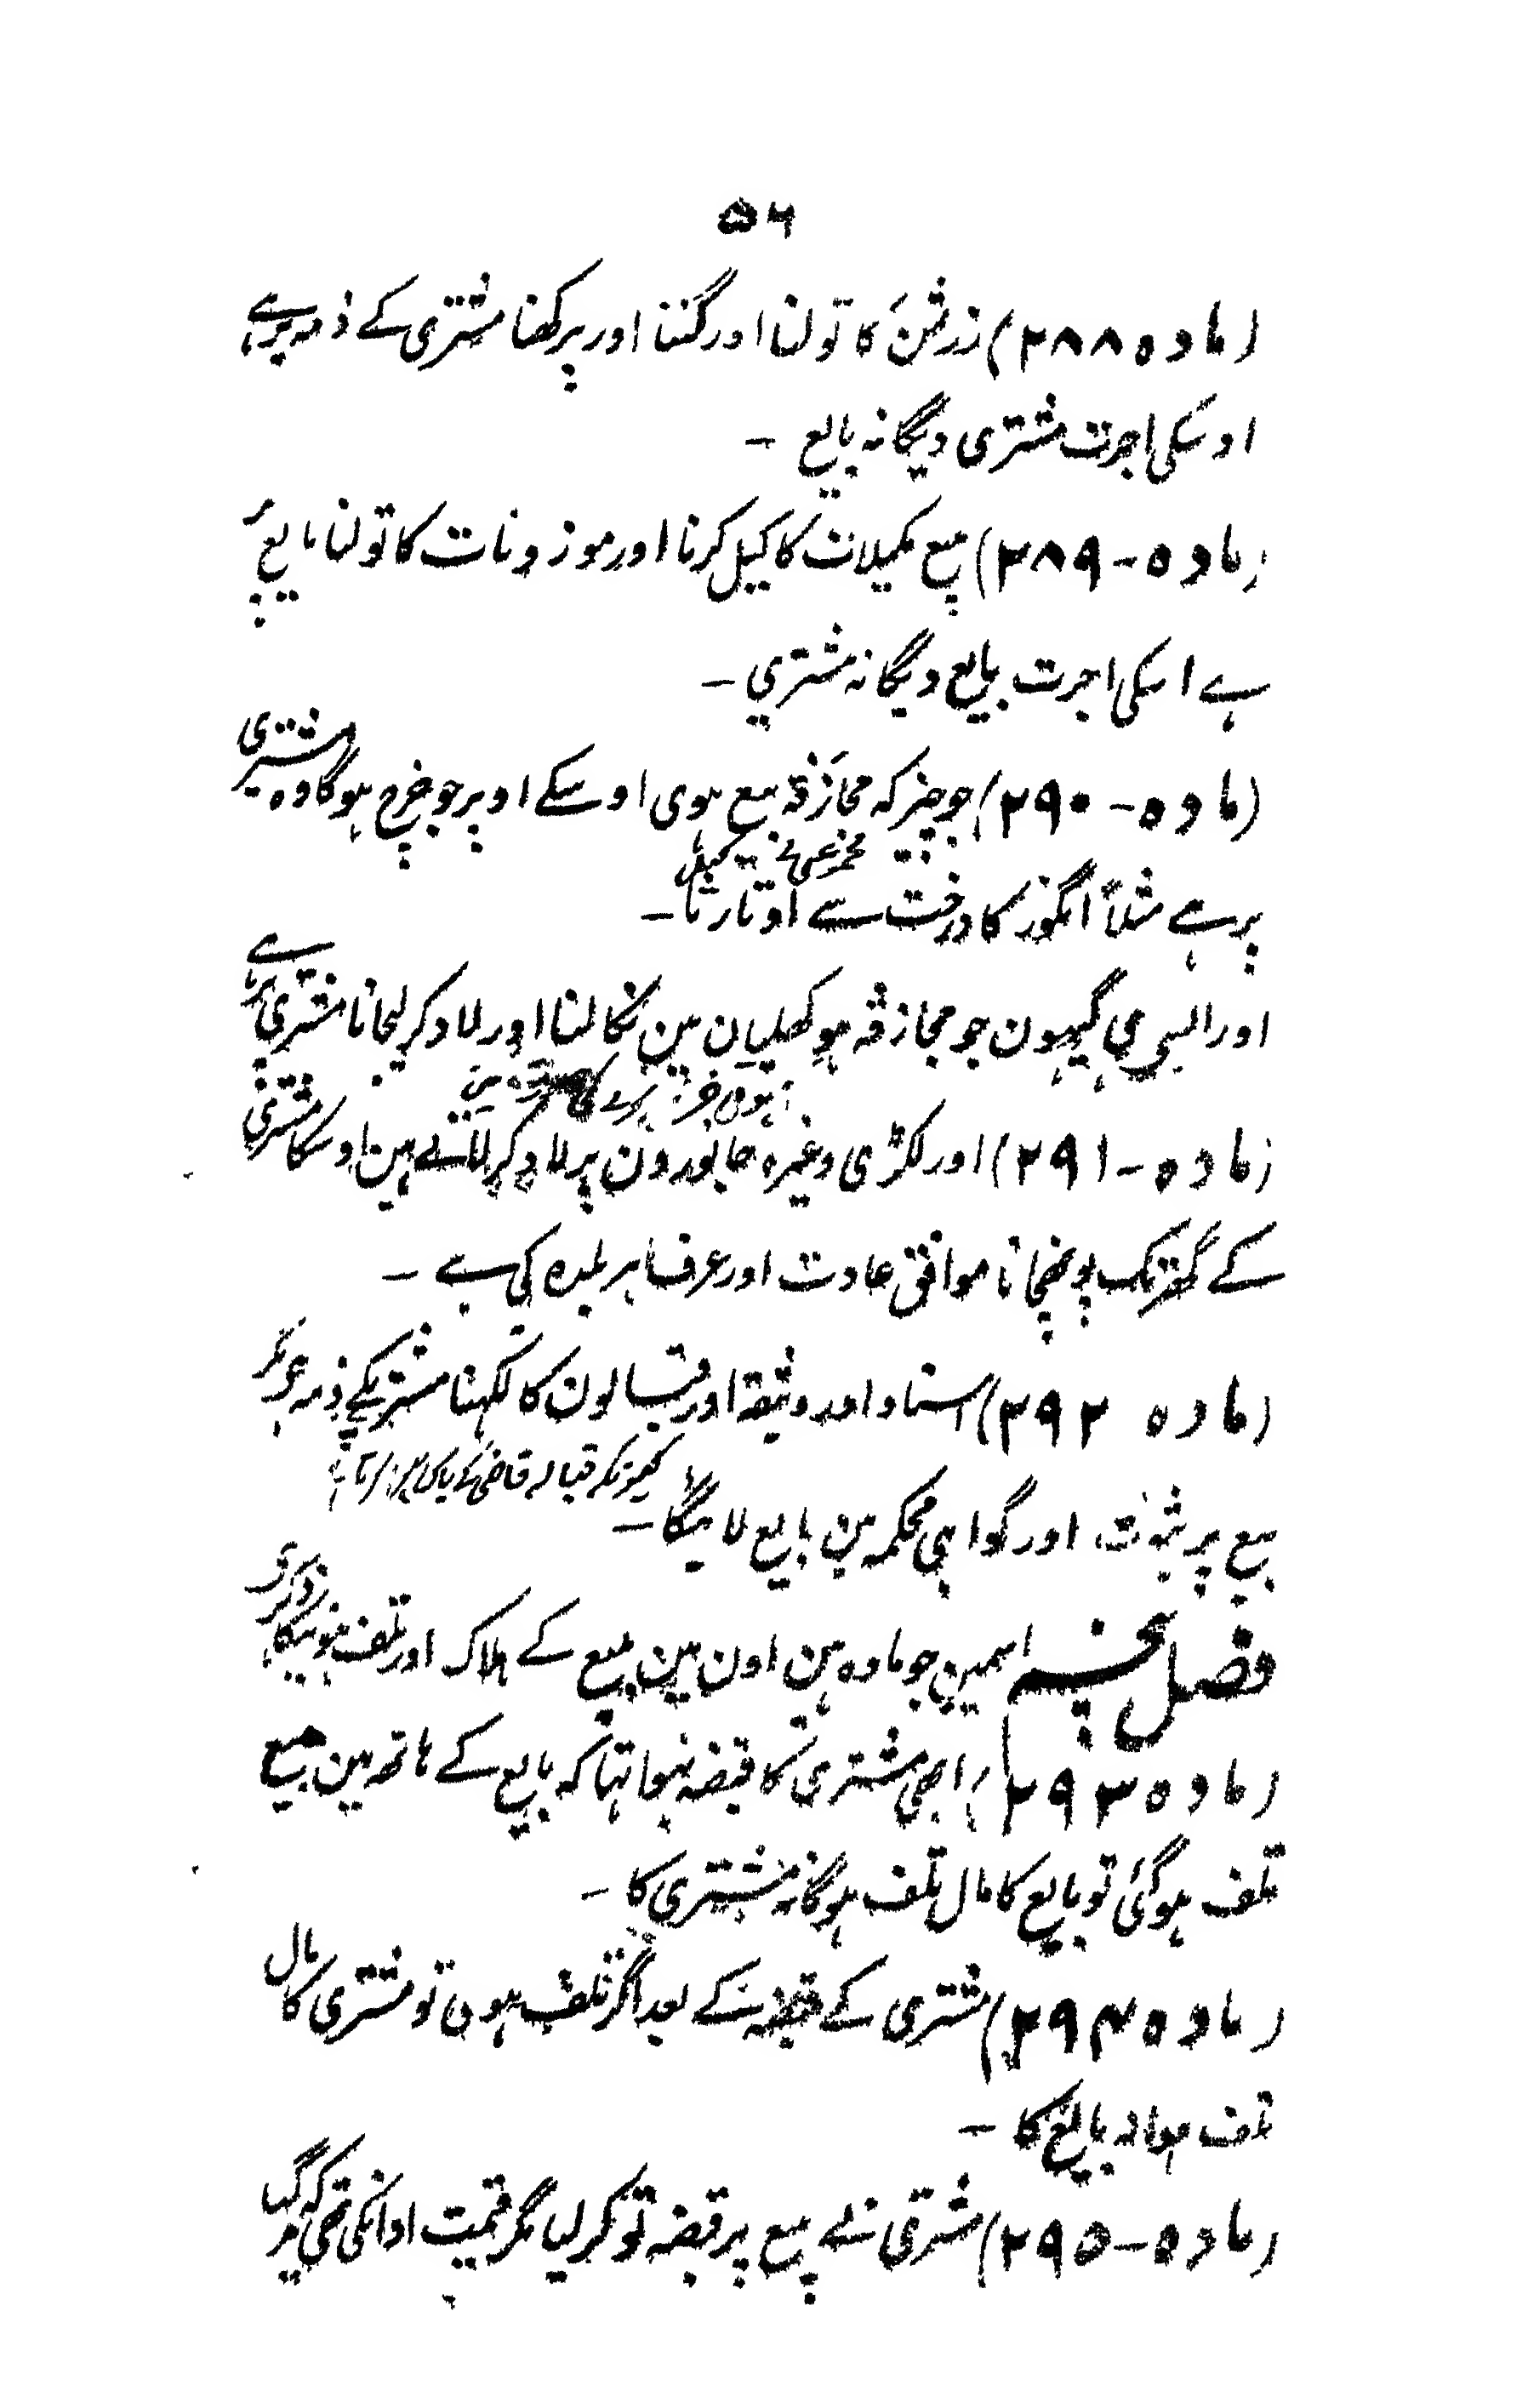 ۵۶
(مادہ ۲۸۸) زر ثمن کا تولنا اور گننا اور پرکھنا مشتری کے ذمہ پر ہے
اوسکی اجرت مشتری دیگا نہ بایع -
(مادہ - ۲۸۹) مبیع مکیلات کا کیل کرنا اور موزونات کا تولنا بایع پر
ہے اسکی اجرت بایع دیگا نہ مشتری -
(مادہ - ۲۹۰) جو چیز کہ مجازفۃ بیع ہوی اوسکے اوپر جو خرچ ہوگا وہ مشتری
پر ہے مثلاً انگور کا درخت سے اوتارنا -
اور ایسی ہی گیہون جو مجازفہ ہو کھلیان مین نکالنا اور لاد کر لیجانا مشتری پر ہے
(مادہ - ۲۹۱) اور لکڑی وغیرہ جانورون پر لاد کر لاتے ہین اوسکا مشتری
کے گھر تک پونہچانا موافق عادت اور عرف ہر بلدہ کی ہے -
(مادہ ۲۹۲) اسناد اور وثیقہ اور قبالون کا لکھنا مشتریکے ذمہ ہی مگر
کیونکہ قبالہ قاضی کے پاس
بیع پر ثبوت اور گواہی محکمہ مین بایع لائیگا -
فصل پنجم اسمین جو مادہ ہین اون مین مبیع کے ہلاک اور تلف ہونیکا ذکر ہی
(مادہ ۲۹۳) ابھی مشتری کا قبضہ نہوا تہا کہ بایع کے ہاتھ مین مبیع
تلف ہوگئی تو بایع کا مال تلف ہوگا نہ مشتری کا -
(مادہ ۲۹۴) مشتری کے قبضہ کے بعد اگر تلف ہوی تو مشتری کا مال
تلف ہوا نہ بایع کا -
(مادہ - ۲۹۵) مشتری نے مبیع پر قبضہ تو کر لیا مگر قیمت ادا نکی تھی کہ مر گیا